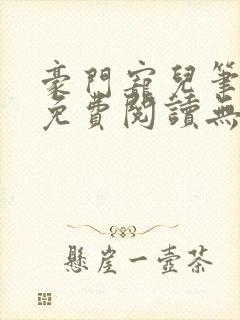 豪門寵兒筆
免費閱讀無
懸崖一壺茶